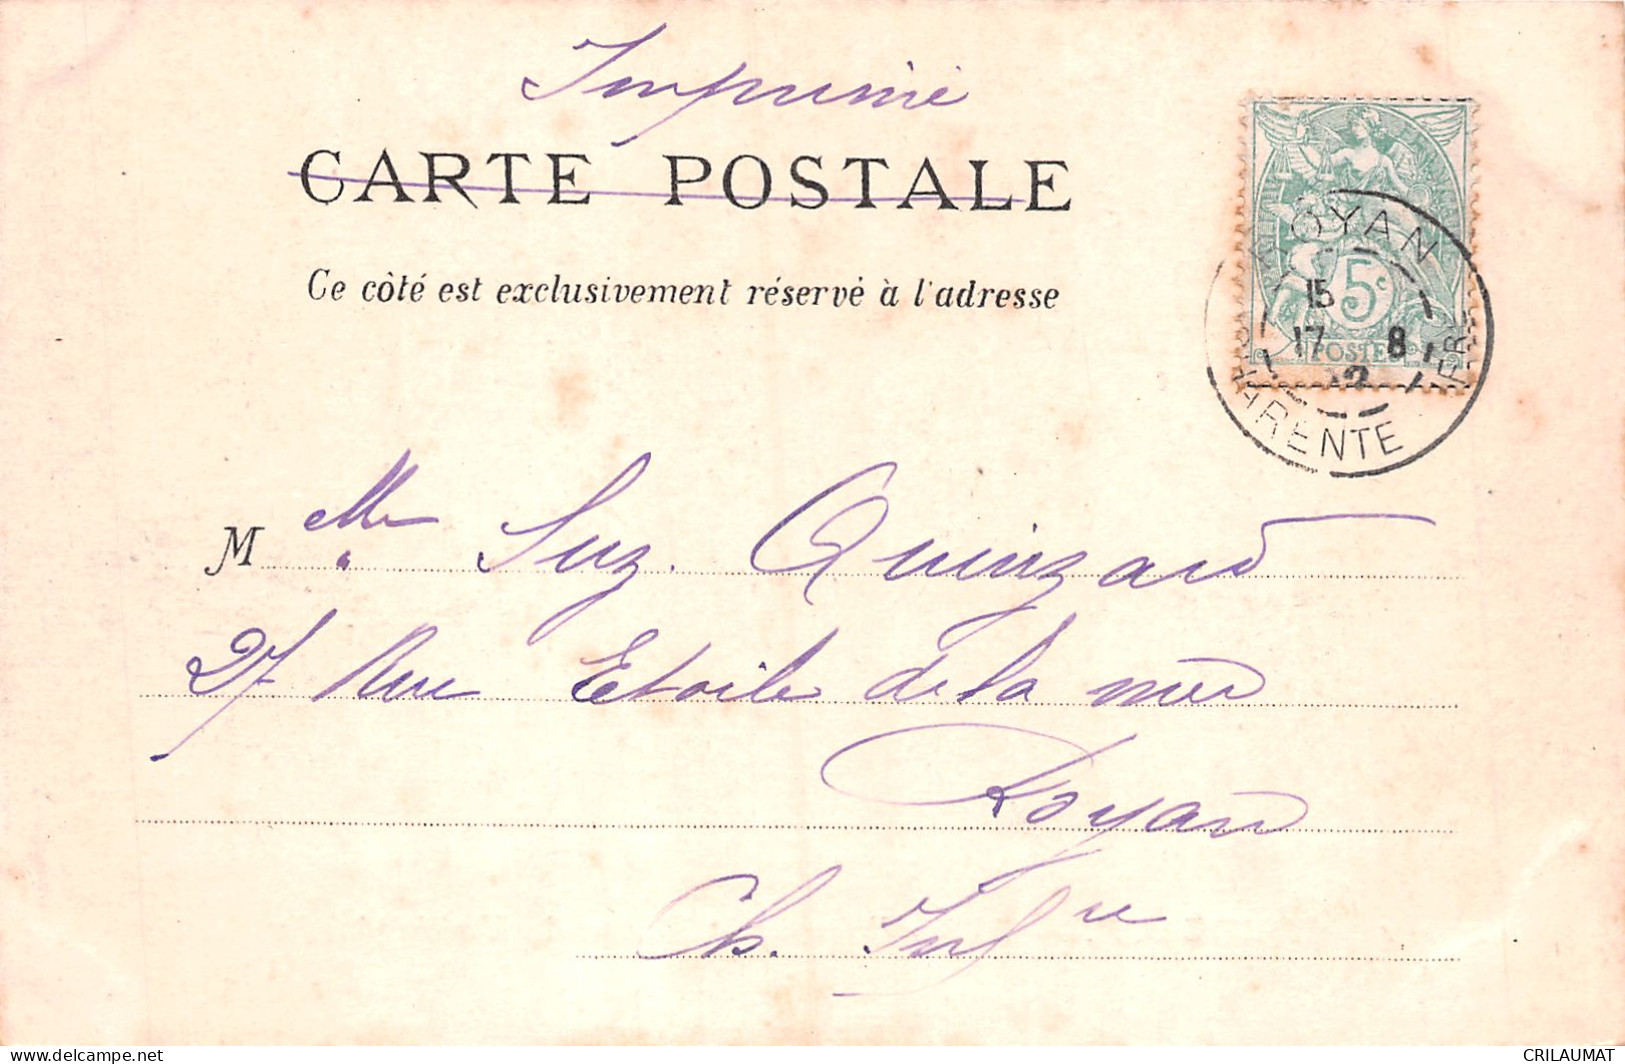 Imprimé
CARTE POSTALE
Ce côté est exclusivement réservé à l'adresse
5c
POSTES
ROYAN
15
17 8
02
CHARENTE INFRE
M elle Suz. Quinzard
27 Rue Etoile de la mer
Royan
Ch. Infre
delcampe.net
CRILAUMAT